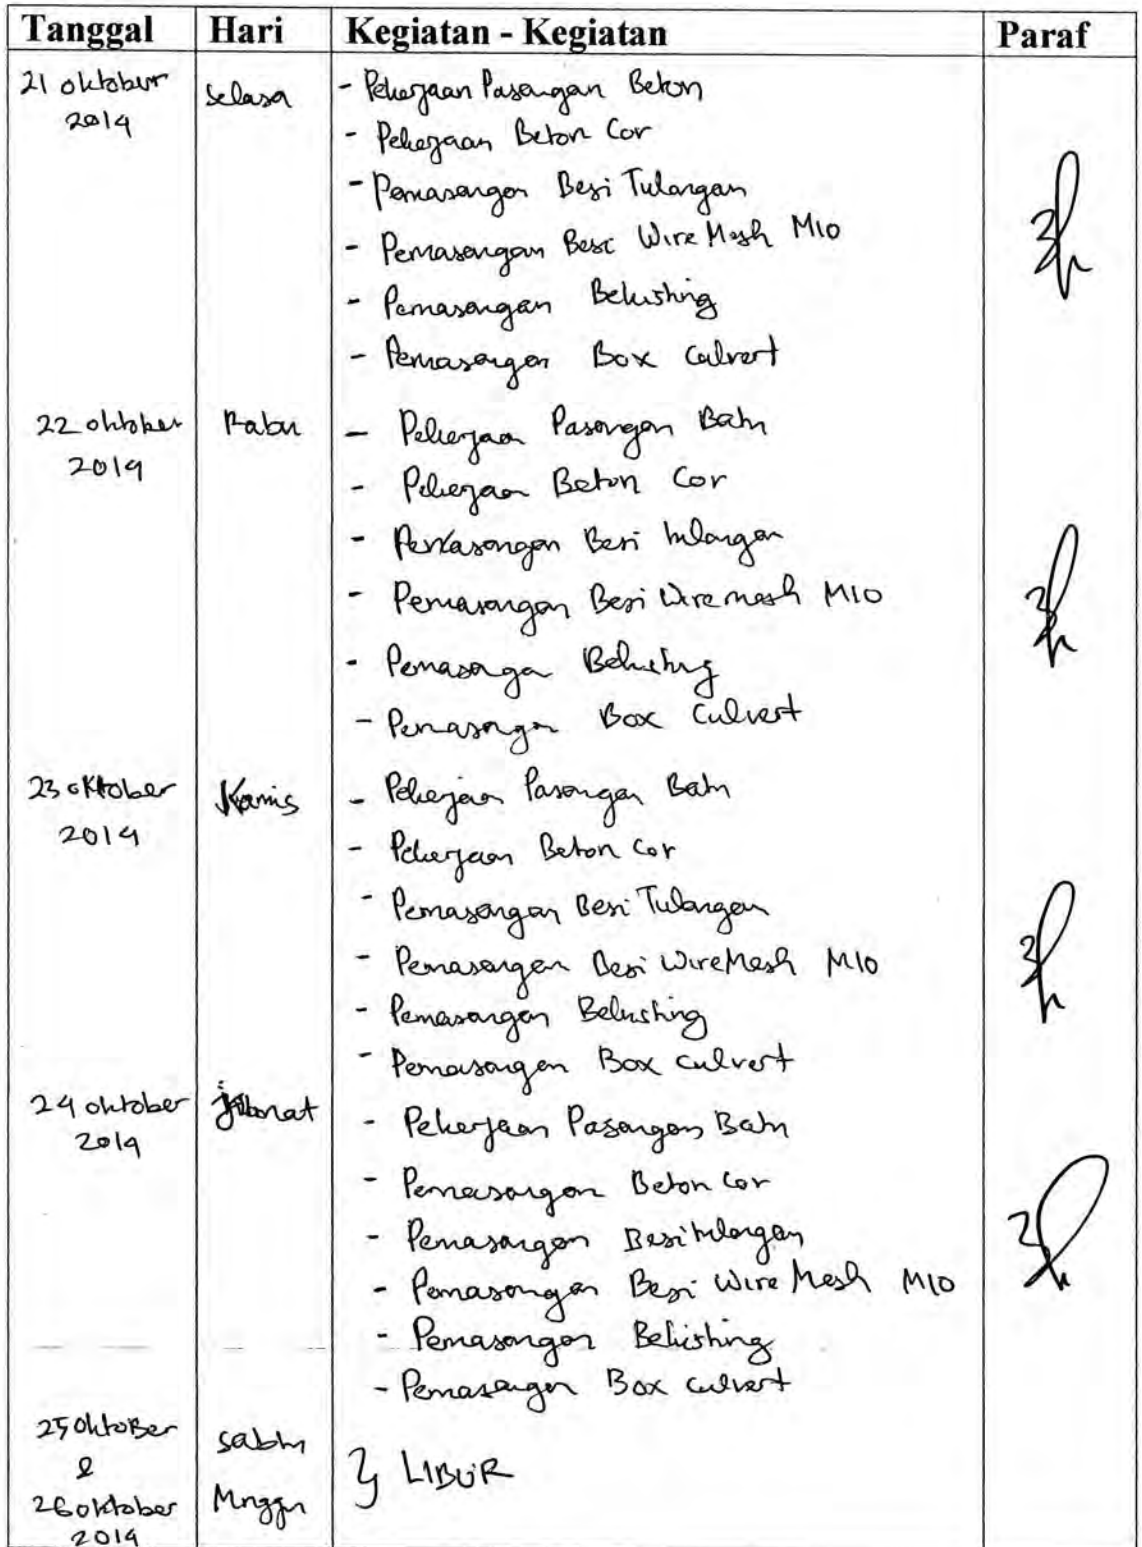 Tanggal Hari Kegiatan - Kegiatan Paraf
21 oktober Selasa - Pekerjaan Pasangan Beton
2014
- Pekerjaan Beton Cor
- Pemasangan Besi Tulangan
- Pemasangan Besi Wire Mesh M10
- Pemasangan Bekisting
- Pemasangan Box Culvert
22 oktober Rabu - Pekerjaan Pasangan Batu
2014
- Pekerjaan Beton Cor
- Pemasangan Besi tulangan
- Pemasangan Besi Wiremesh M10
- Pemasanga Bekisting
- Pemasangan Box Culvert
23 oktober Kamis - Pekerjaan Pasangan Batu
2014
- Pekerjaan Beton Cor
- Pemasangan Besi Tulangan
- Pemasangan Besi WireMesh M10
- Pemasangan Bekisting
- Pemasangan Box culvert
24 oktober Jumat - Pekerjaan Pasangan Batu
2014
- Pemasangan Beton Cor
- Pemasangan Besi tulangan
- Pemasangan Besi Wire Mesh M10
- Pemasangan Bekisting
- Pemasangan Box culvert
25 oktoBer Sabtu
& } LIBUR
26 oktober Minggu
2014